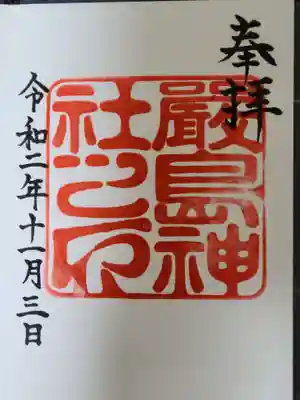 奉拝
嚴島神
社之印
令和二年十一月三日